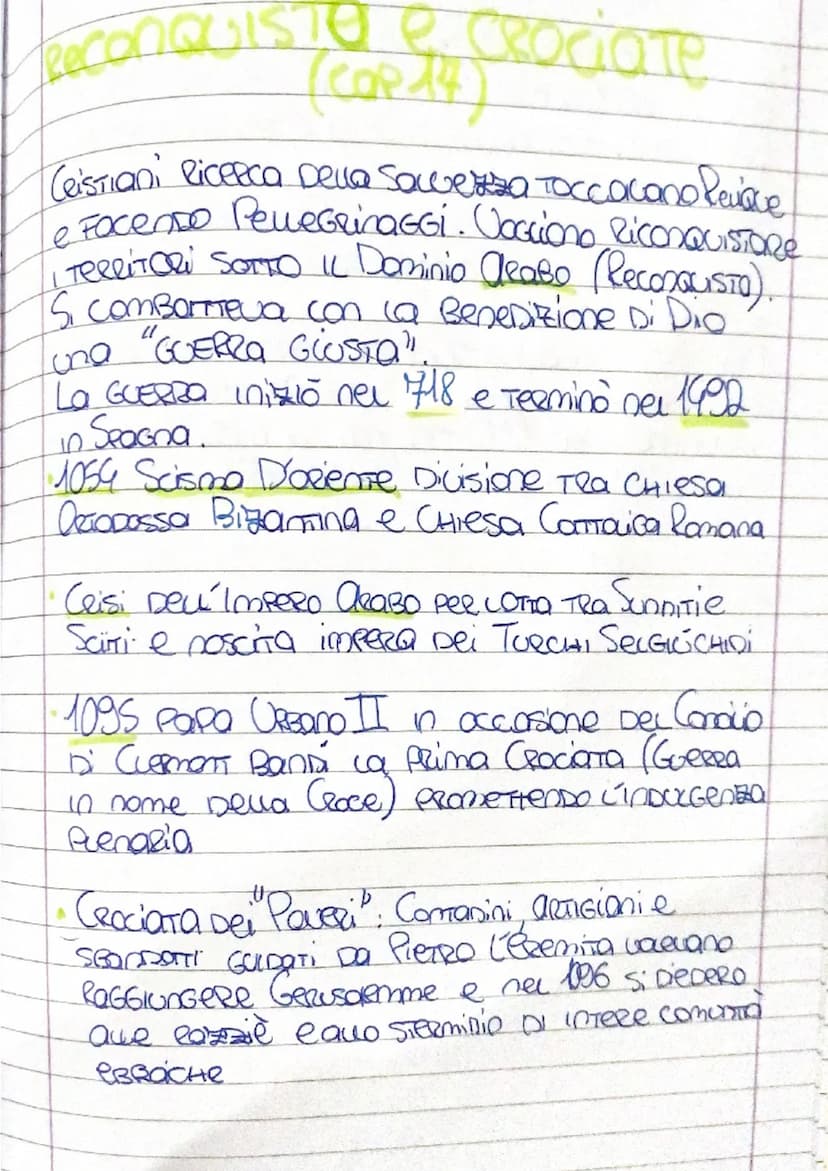 RECONQUISTA e CROCIATE
(CAP 14)
Cristiani Ricerca Della Salvezza Toccavano Reliquie
e Facendo Pellegrinaggi. Vogliono Riconquistare
i Territori sotto il Dominio Arabo (Reconquista).
Si combatteva con la Benedizione Di Dio
una "Guerra Giusta".
La Guerra iniziò nel 718 e Terminò nel 1492
in Spagna.
·1054 Scisma D'oriente Divisione Tra Chiesa
Ortodossa Bizantina e Chiesa Cattolica Romana
· Crisi Dell'Impero Arabo per Lotta Tra Sunniti e
Sciiti e nascita impero Dei Turchi Selgiuchidi
· 1095 Papa Urbano II in occasione Del Concilio
Di Clermont Bandì la Prima Crociata (Guerra
in nome Della Croce) promettendo l'indulgenza
Plenaria
· Crociata Dei "Poveri": Contadini, artigiani e
sbandati guidati Da Pietro L'Eremita volevano
Raggiungere Gerusalemme e nel 1096 si Diedero
alle razzie e allo sterminio Di intere comunità
ebraiche